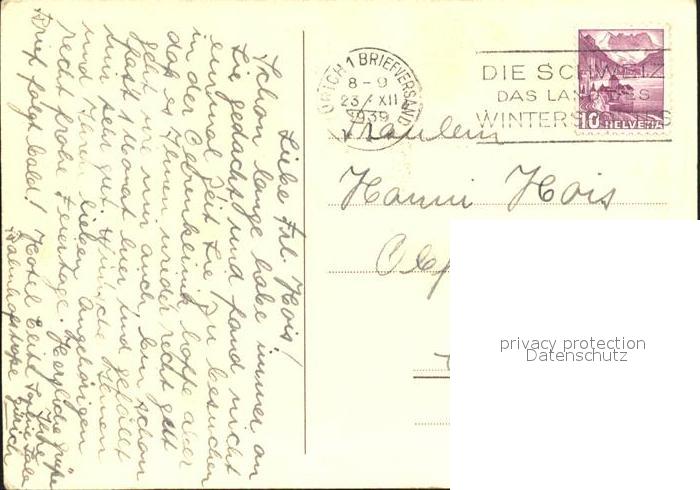 Liebe Frl. Hois!
Schon lange habe immer an
Sie gedacht und fand nicht
einmal Zeit Sie zu besuchen
in der hoffe aber
das es Ihnen wieder recht gut
geht wie mir auch, bin schon
fast 1 Monat hier und gefällt
mir sehr gut. Wünsche Ihnen
und Ihren lieben Angehörigen
recht frohe Feiertage. Herzliche Grüße
Brief folgt bald! Ihre
Hotel
Bahnhofstraße Zürich
ZÜRICH 1 BRIEFVERSAND
8-9
23. XII
1939
DIE SCHWEIZ
DAS LAND DES
WINTERSPORTS
10 HELVETIA
Fräulein
Hanni Hois
privacy protection
Datenschutz